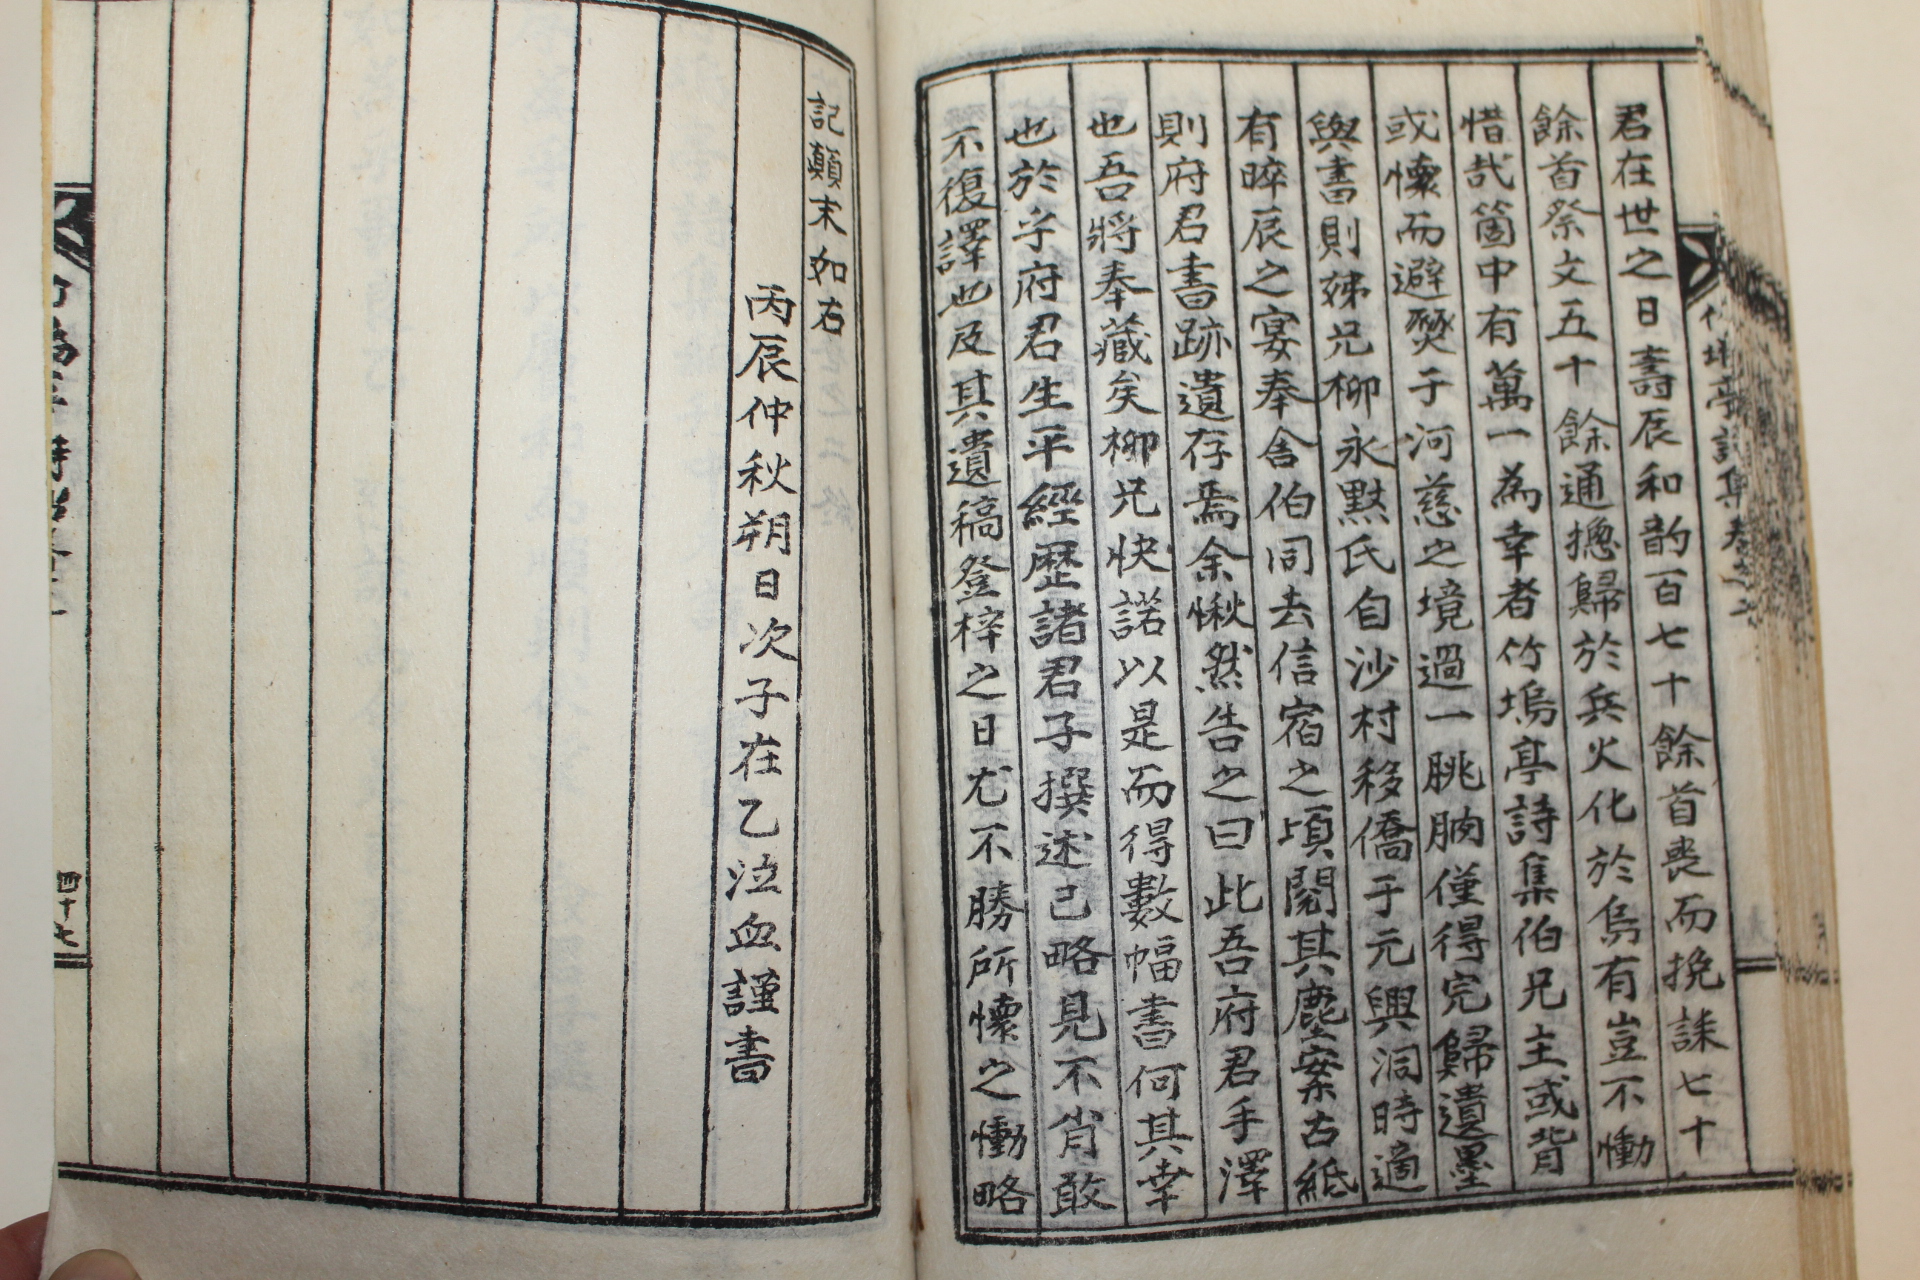 竹塢亭詩集卷之二
君在世之日壽辰和韵百七十餘首喪而挽誄七十
餘首祭文五十餘通摠歸於兵火化於烏有豈不慟
惜哉箇中有萬一為幸者竹塢亭詩集伯兄主或背
或懷而避𤎅于河慈之境過一朓朒僅得完歸遺墨
與書則姊兄柳永默氏自沙村移僑于元興洞時適
有晬辰之宴奉舍伯同去信宿之頃閱其塵案古紙
則府君書跡遺存焉余愀然告之曰此吾府君手澤
也吾將奉藏矣柳兄快諾以是而得數幅書何其幸
也於乎府君生平經歷諸君子撰述已略見不肖敢
不復譯也及其遺稿登梓之日尤不勝所懷之慟略
記顛末如右
丙辰仲秋朔日次子在乙泣血謹書
四十七